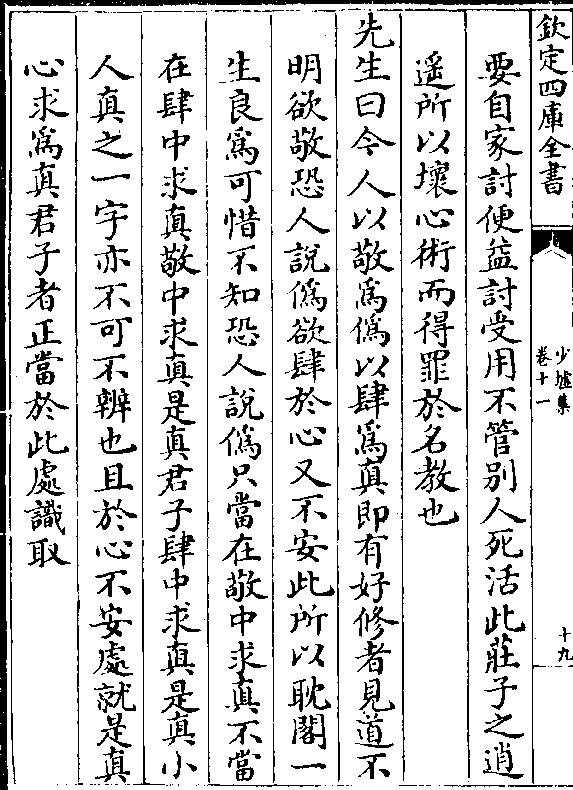 欽定四庫全書
少墟集
卷十一
十九
要自家討便益討受用不管別人死活此莊子之逍
遥所以壞心術而得罪於名教也
先生曰今人以敬爲僞以肆爲真即有好修者見道不
明欲敬恐人說僞欲肆於心又不安此所以耽閣一
生良爲可惜不知恐人說僞只當在敬中求真不當
在肆中求真敬中求真是真君子肆中求真是真小
人真之一字亦不可不辨也且於心不安處就是真
心求爲真君子者正當於此處識取